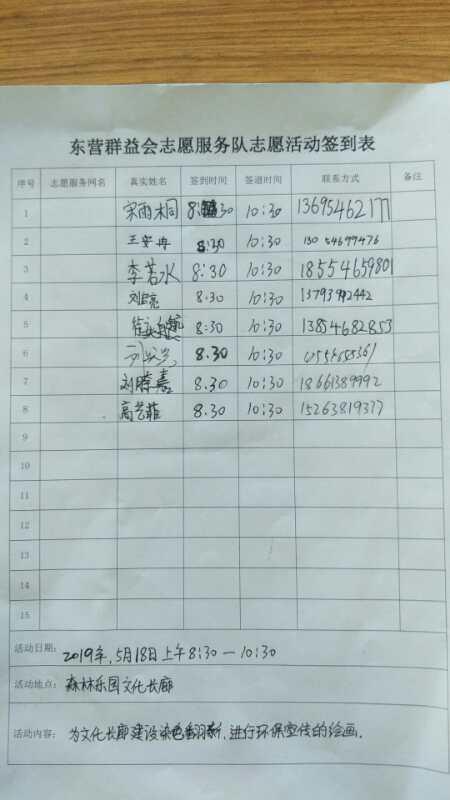 东营群益会志愿服务队志愿活动签到表
序号 志愿服务网名 真实姓名 签到时间 签退时间 联系方式 备注
1 宋雨桐 8:30 10:30
2 王安冉 8:30 10:30 13054699476
3 李若水 8:30 10:30 18554659801
4 刘 8.30 10:30
5 8:30 10:30 13854682853
6 8.30 10:30
7 刘 8.30 10:30 18661389992
8 高艺菲 8.30 10:30 15263819377
9
10
11
12
13
14
15
活动日期: 2019年,5月18日上午8:30—10:30
活动地点: 森林乐园文化长廊
活动内容: 为文化长廊建设染色翻新,进行环保宣传的绘画.